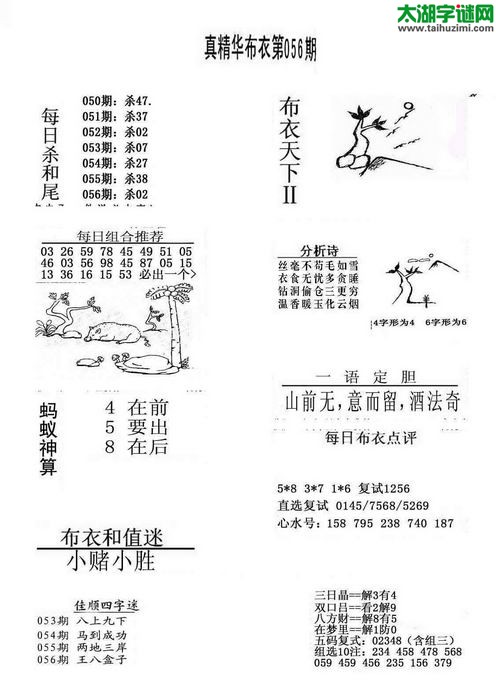 太湖字谜网
www.taihuzimi.com
真精华布衣第056期
每日杀和尾
050期：杀47.
051期：杀37
052期：杀02
053期：杀07
054期：杀27
055期：杀38
056期：杀02
布衣天下II
每日组合推荐
03 26 59 78 45 49 51 05
46 03 56 98 45 87 05 15
13 36 16 15 53 必出一个>
分析诗
丝毫不苟毛如雪
衣食无忧多贪睡
钻洞偷仓三更穷
温香暖玉化云烟
4字形为4 6字形为6
蚂蚁神算
4 在前
5 要出
8 在后
一语定胆
山前无,意而留,酒法奇
每日布衣点评
5*8 3*7 1*6 复试1256
直选复试 0145/7568/5269
心水号: 158 795 238 740 187
布衣和值迷
小赌小胜
佳顺四字迷
053期 八上九下
054期 马到成功
055期 两地三岸
056期 王八盒子
三日晶==解3有4
双口吕==看2解9
八方财==解8有5
在梦里==解1防0
五码复式: 02348 (含组三)
组选10注: 234 458 478 568
059 459 456 235 156 379